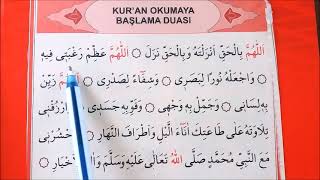 KUR'AN OKUMAYA
BAŞLAMA DUASI
اَللّٰهُمَّ بِالْحَقِّ اَنْزَلْتَهُ وَبِالْحَقِّ نَزَلَ ۞ اَللّٰهُمَّ عَظِّمْ رَغْبَتِى فِيهِ
۞ وَاجْعَلْهُ نُورًا لِبَصَرِى ۞ وَشِفَاءً لِصَدْرِى ۞ زَيِّنْ
بِهِ لِسَانِى ۞ وَجَمِّلْ بِهِ وَجْهِى ۞ وَقَوِّ بِهِ جَسَدِى ۞ وَارْزُقْنِى
تِلَاوَتَهُ عَلٰى طَاعَتِكَ اٰنَاءَ الَّيْلِ وَاَطْرَافَ النَّهَارِ ۞ وَاحْشُرْنِى
مَعَ النَّبِيِّ مُحَمَّدٍ صَلَّى اللّٰهُ تَعَالٰى عَلَيْهِ وَسَلَّمَ وَاٰلِهِ الْاَخْيَارِ ۞